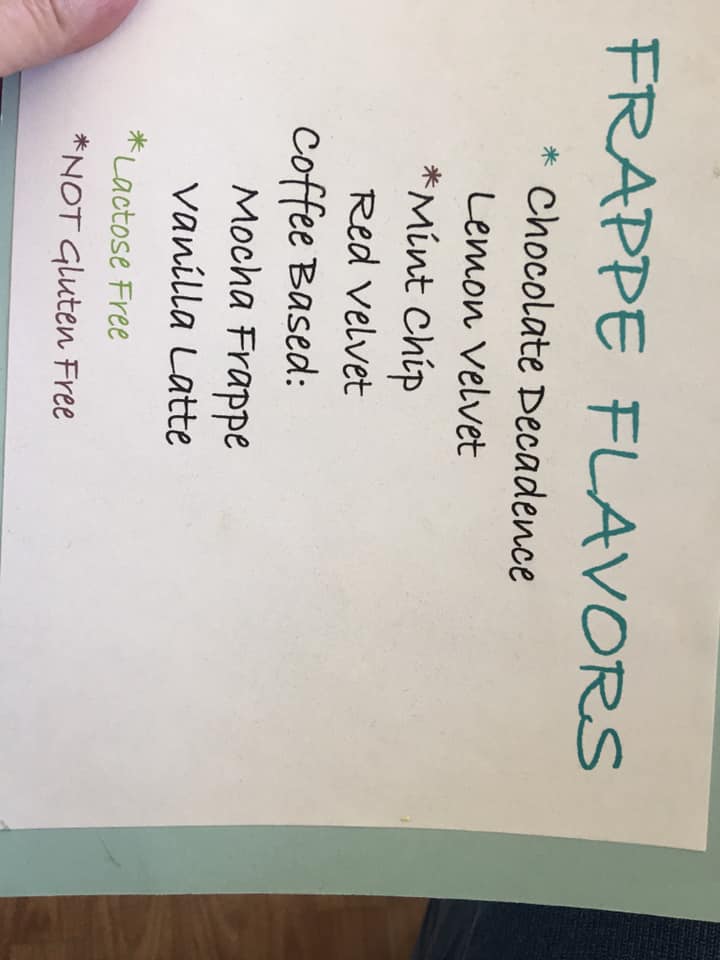 FRAPPE FLAVORS
* Chocolate Decadence
Lemon Velvet
*Mint Chip
Red Velvet
Coffee Based:
Mocha Frappe
Vanilla Latte
*Lactose Free
*NOT Gluten Free